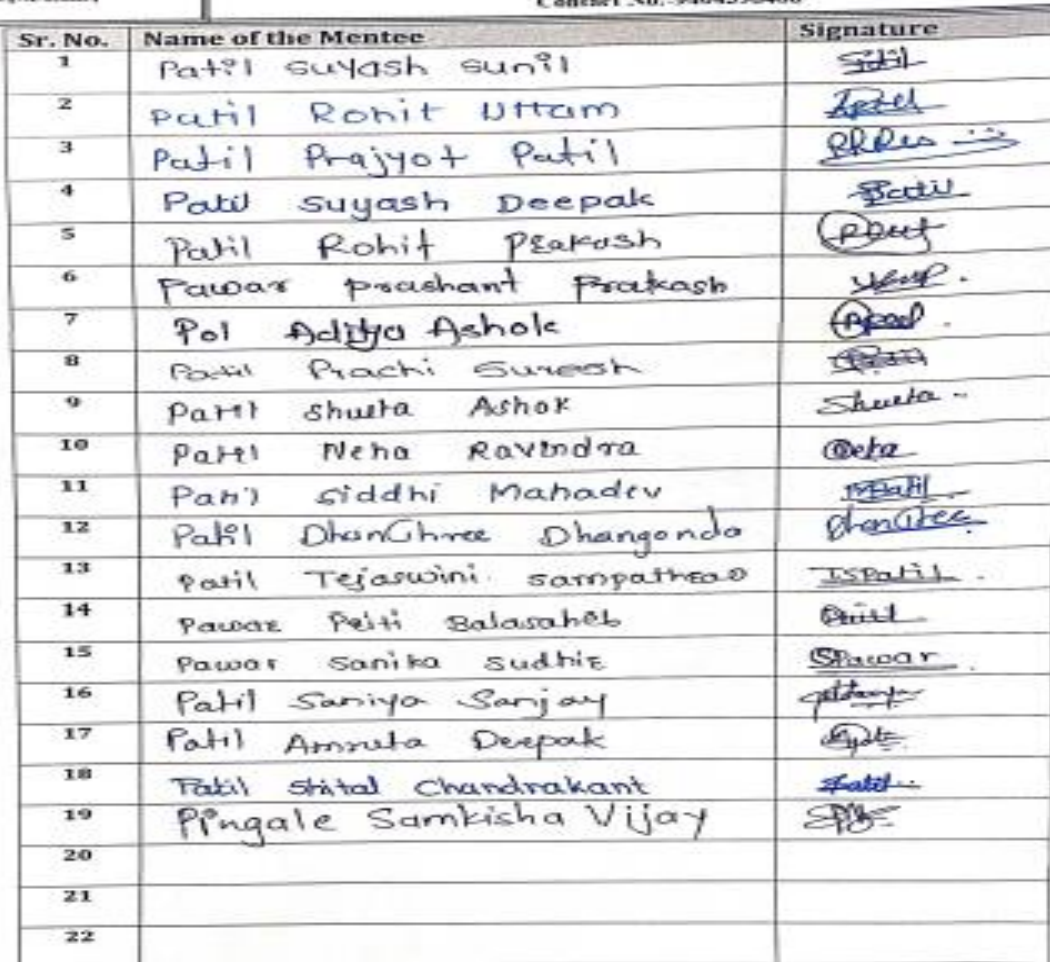 Sr. No. Name of the Mentee Signature
1 Patil suyash sunil
2 Patil Rohit Uttam
3 Patil Prajyot Patil
4 Patil suyash Deepak Patil
5 Patil Rohit Prakash
6 Pawar prashant Prakash
7 Pol Aditya Ashok
8 Patil Prachi Suresh
9 Patil shweta Ashok Shweta
10 Patil Neha Ravindra Neha
11 Patil siddhi Mahadev
12 Patil Dhanshree Dhangonda
13 Patil Tejaswini sampatrao TSPatil
14 Pawar Priti Balasaheb
15 Pawar sanika sudhir SPawar
16 Patil Saniya Sanjay
17 Patil Amruta Deepak
18 Patil Shital Chandrakant
19 Pingale Samkisha Vijay
20
21
22